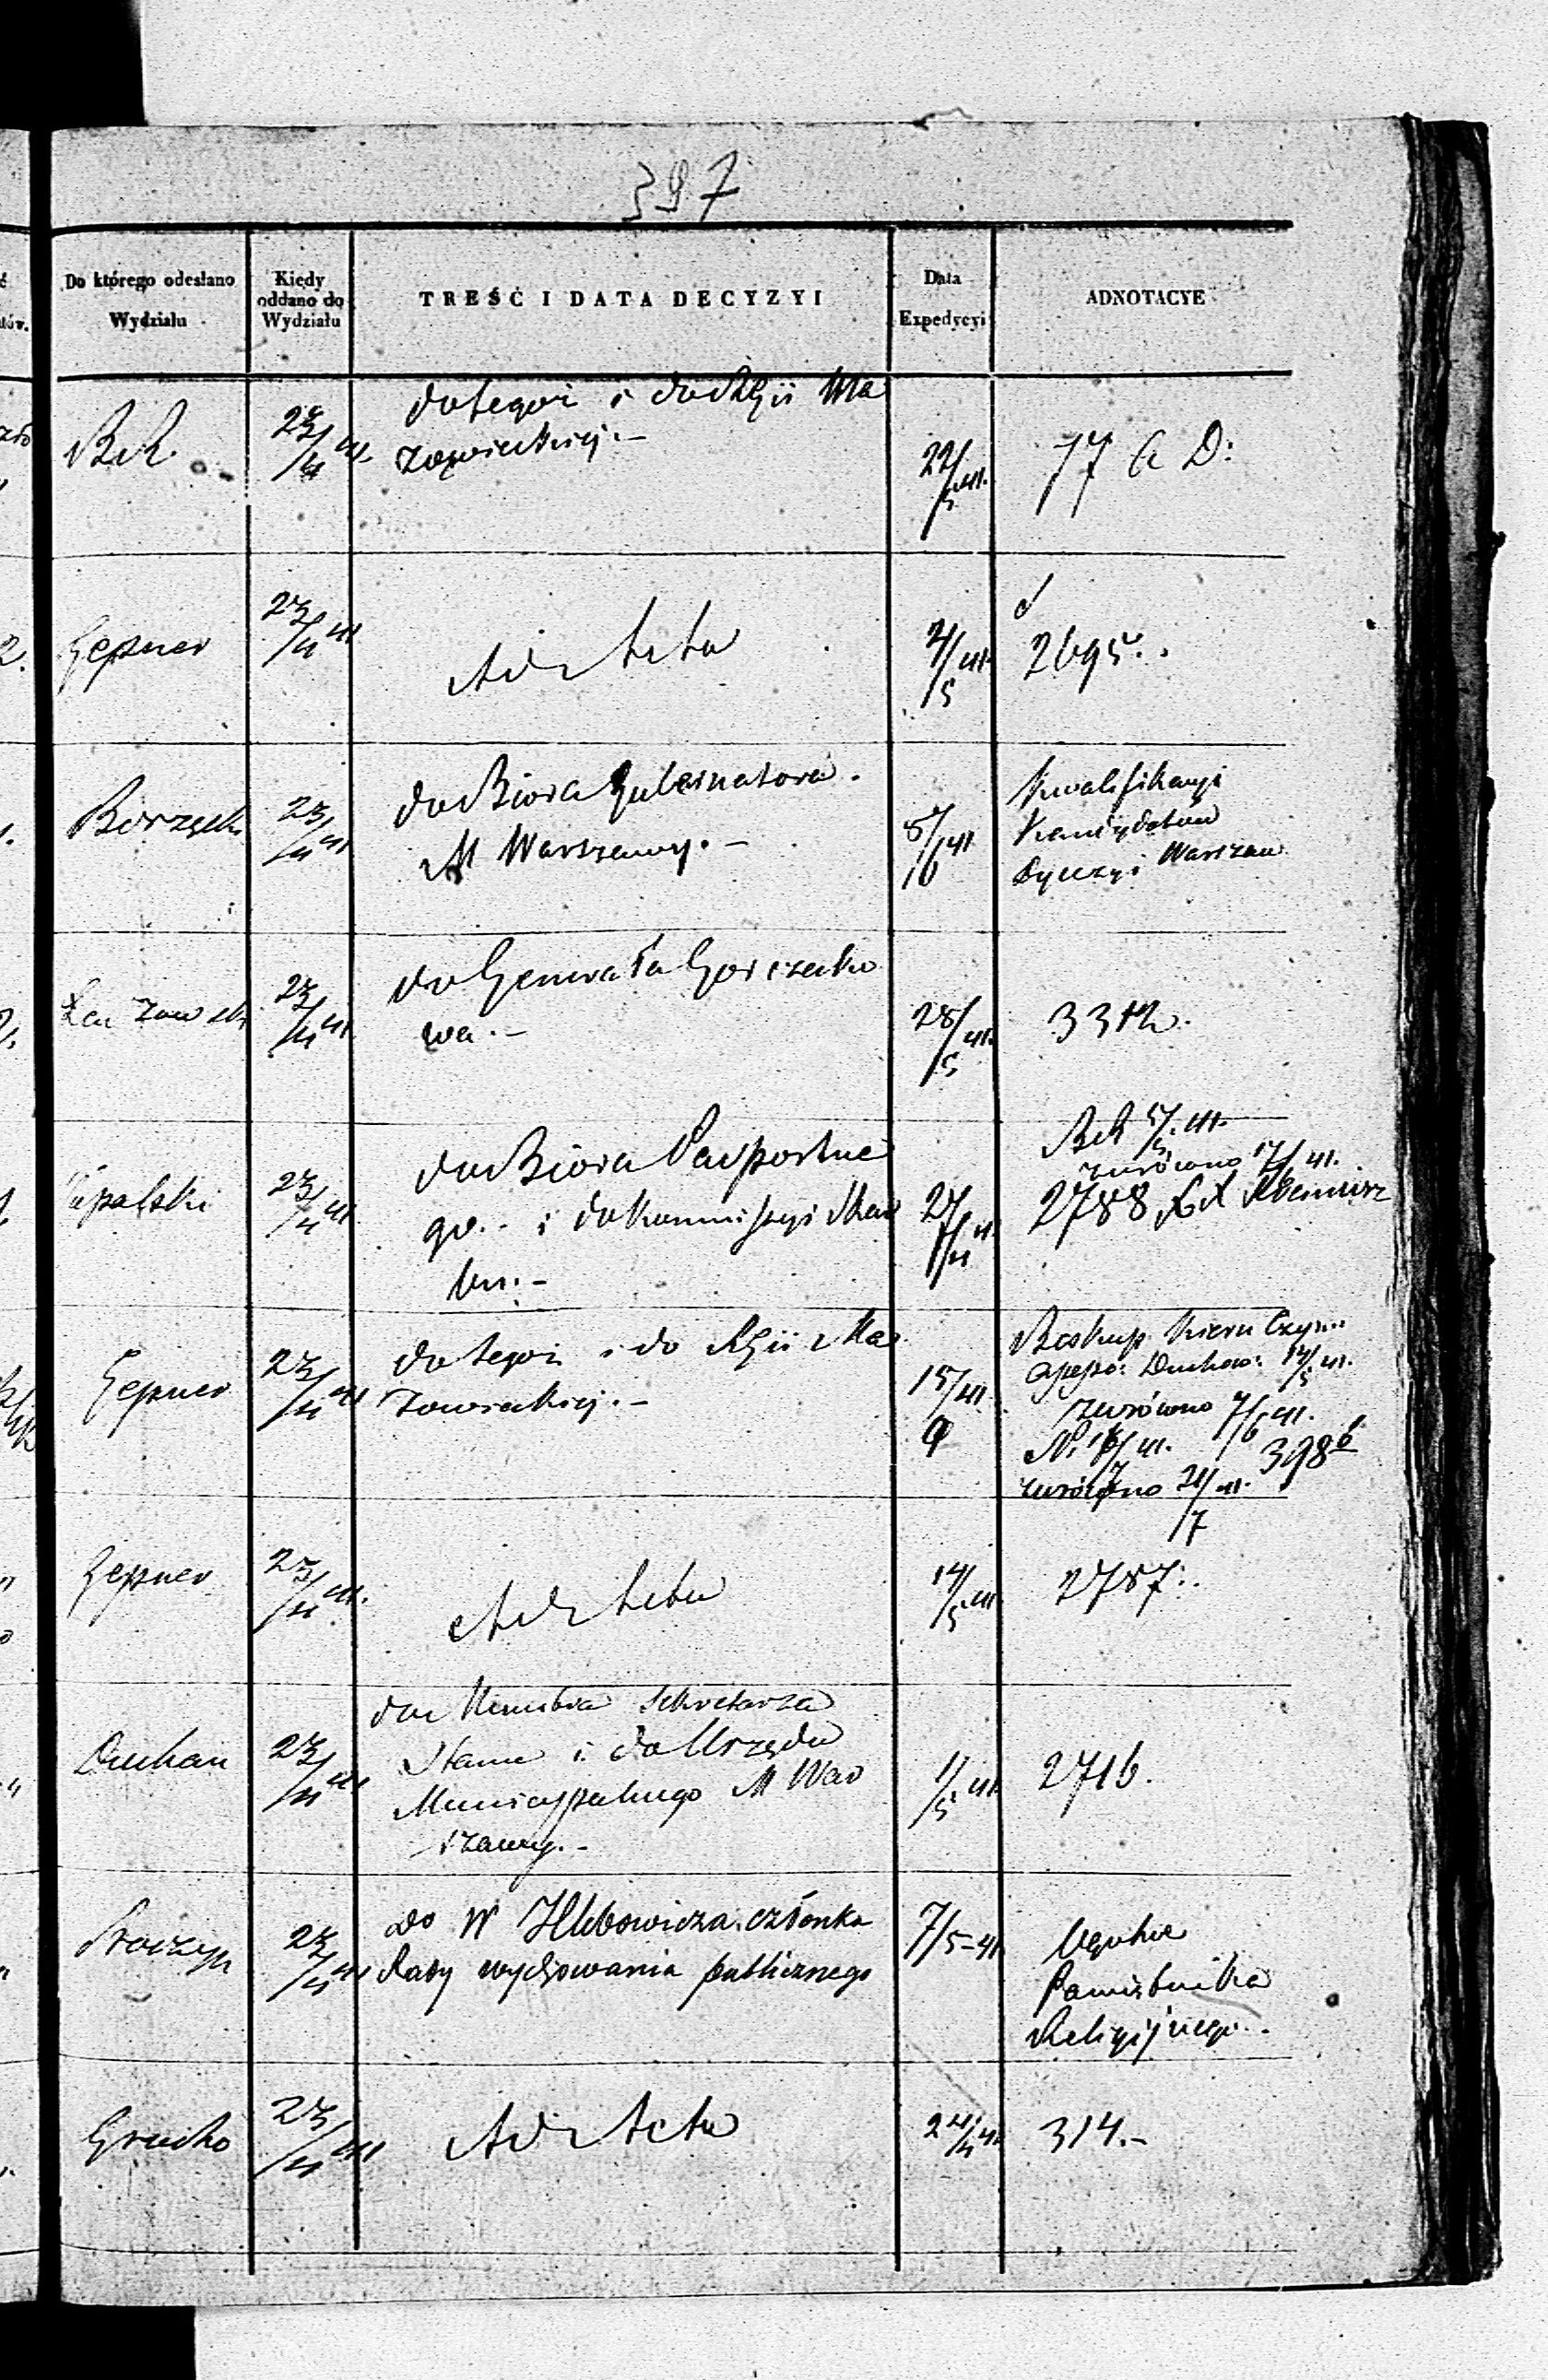 397
Do którego odesłano Wydziału
Kiedy oddano do Wydziału
TREŚĆ I DATA DECYZYI
Data Expedycyi
ADNOTACYE
23/4 41.
do tegoż i do Rządu Ma
zowieckiej.-
22/5 41.
77
D:
Gepner
23/4 41
Ad Acta
4/5 41.
2695.
Borzęcki
23/4 41
do Biura Gubernatora
M Warszawy.-
5/6 41
Kwalifikacyi
Kandydatów
Dyecezyi Warszaw
23/4 41.
do Generała Gorczako
wa.-
28/5 41.
3312.
23/4 41
do Biura Pasportne
go.- i do Kommissyi Skar
bu.-
5/5 41.
zwrócono 17/5 41.
2788
Gepner
23/4 41
do tegoż i do Rgii Ma
zowieckiej.-
15/9 41.
Biskup
Duchow: 14/5 41.
zwrócono 7/6 41.
zwrócono 21/7 41.
3986
Gepner
23/4 41.
Ad Acta
14/5 41
2787.
23/4 41
do Ministra Sekretarza
Stanu i do Urzędu
Municypalnego M War
szawy.-
1/5 41.
2716.
23/4 41
Do W Hlebowicza, członka
Rady wychowania publicznego
7/5 - 41
Ogólne
Pamiętnika
Religijnego.
23/4 41
Ad Acta
24/4 41
314.-